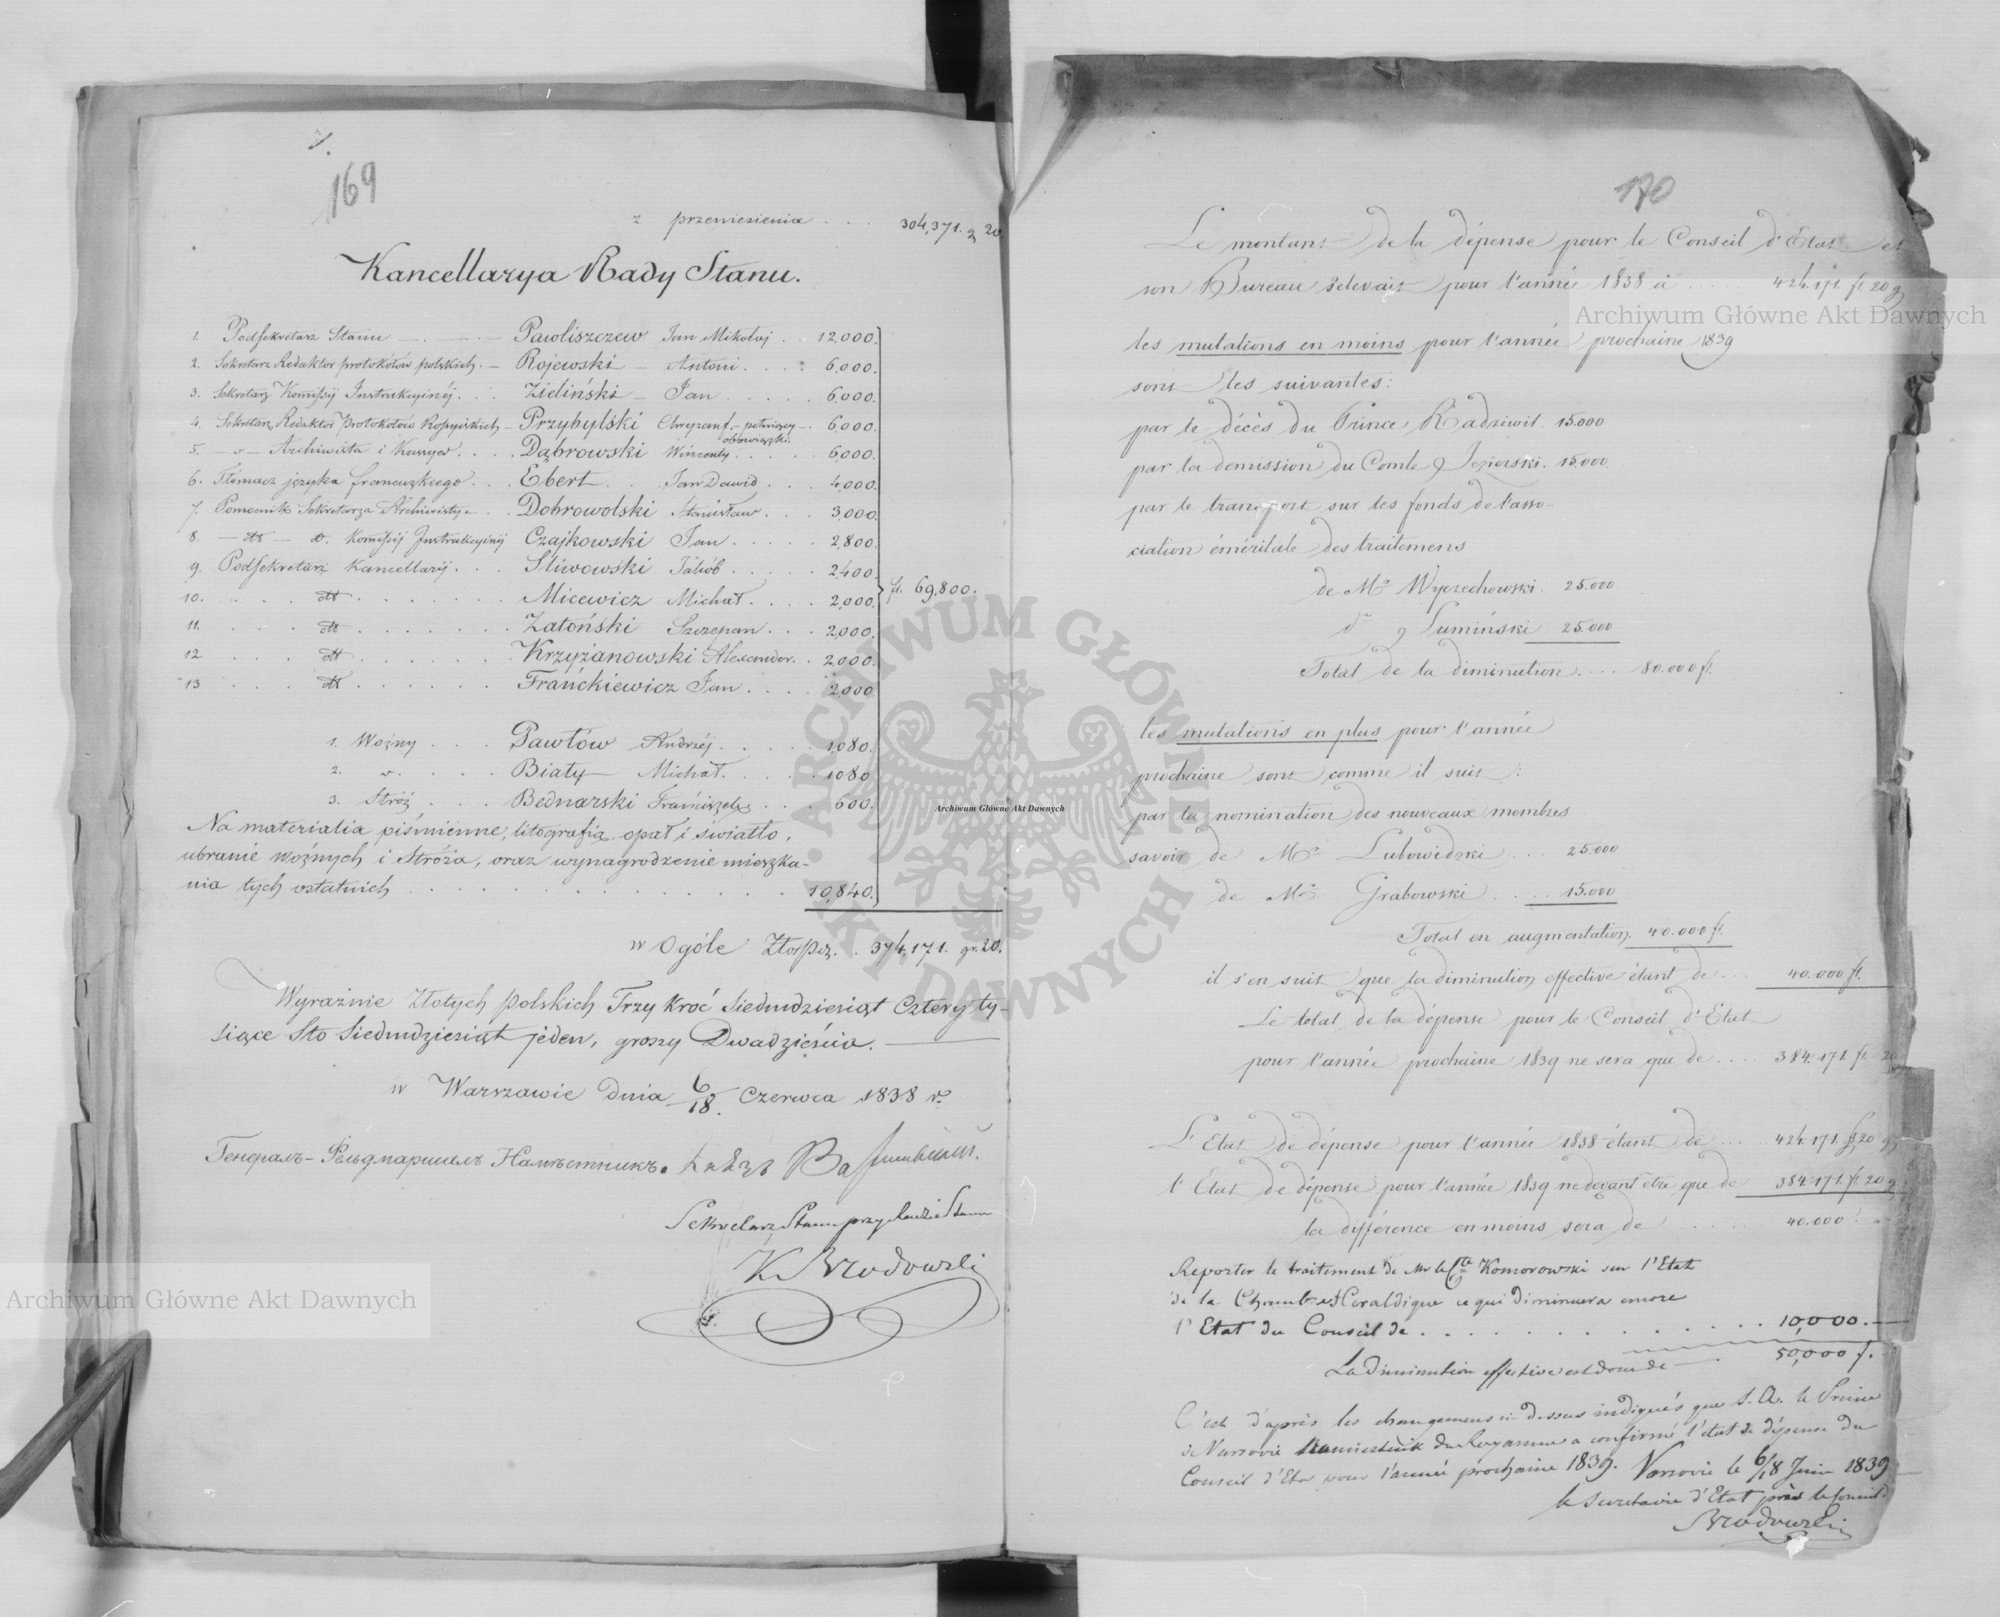 169
z przeniesienia . . . 304,371. g 20.
Kancellarya Rady Stanu.
1. Podsekretarz Stanu — . — . — Pawliszczew Jan Mikołaj . . 12,000.
2. Sekretarz Redaktor protokołów polskich. — Rojewski — Antoni . . . . 6,000.
3. Sekretarz Komissyi Instrukcyinéj . . . Zieliński — Jan . . . . . 6,000.
4. Sekretarz Redaktor Protokołów Rossyiskich — Przybylski Chryzanf. — pełniący obowiązki. — . 6,000.
5. — „ — Archiwista i Kassyer . . . . Dąbrowski Wincenty . . . . . 6,000.
6. Tłómacz języka francuzkiego . . . Ebert . . Jan Dawid . . . 4,000.
7. Pomocnik Sekretarza Archiwisty — . . Dobrowolski Stanisław . . . 3,000.
8. — dtt — d. Komissyi Instrukcyinéj Czajkowski Jan . . . . . 2,800.
9. Podsekretarz Kancellaryi . . . Sliwowski Jakób . . . . . 2,400.
10. . . . . dtt . . . . . . . Micewicz Michał . . . . 2,000. fl. 69,800.
11. . . . . dtt . . . . . . . Zatoński Szczepan . . . 2,000.
12 . . . . dtt . . . . . . . Krzyżanowski Alexander . . 2,000.
13 . . . . dtt . . . . . . Frańckiewicz Jan . . . . 2,000
1. Woźny . . . Pawłów Andrzéj . . . . . 1,080.
2. „ . . . . Biały — Michał . . . . . 1,080
3. Stróż . . . Bednarski Frańciszek . . . 600.
Na materialia piśmienne, litografią opał i światło,
ubranie woźnych i Stróża, oraz wynagrodzenie mieszka-
nia tych ostatnich . . . . . . . . . . . . . 10,840.
w Ogóle Złotpol. . . 374,171. gr. 20.
Wyraźnie Złotych polskich Trzy kroć Siedmdziesiąt Cztery ty-
siące Sto Siedmdziesiąt jeden, groszy Dwadzieścia. —
w Warszawie dnia 6/18. Czerwca 1838 r.
Генералъ-Фельдмаршалъ Намѣстникъ. Князь Варшавскій.
Sekretarz Stanu przy Radzie Stanu
K Brodowski
170
Le montant de la dépense pour le Conseil d'Etat et
son Bureau s'élevait pour l'année 1838 à . . . . . 424.171. fl 20 g
les mutations en moins pour l'année prochaine 1839
sont les suivantes:
par le décès du Prince Radziwil. 15.000
par la demission du Comte Jezierski. 15.000
par le transport sur les fonds de l'asso-
ciation éméritale des traitemens
de Mr Wyczechowski. 25.000
d° Lumiński 25.000
Total de la diminution. . . . 80.000 fl.
les mutations en plus pour l'année
prochaine sont comme il suit:
par la nomination des nouveaux membres
savoir de Mr Lubowidzki . . . 25.000
de Mr Grabowski . . . . 15.000
Total en augmentation. 40.000 fl.
il s'en suit que la diminution effective étant de . . . 40.000 fl.
Le total de la dépense pour le Conseil d'Etat
pour l'année prochaine 1839 ne sera que de . . . . 384.171. fl 20
L'Etat de dépense pour l'année 1838 étant de . . . 424.171. fl 20 g
l'Etat de dépense pour l'année 1839 ne devant etre que de 384.171. fl 20 g
la différence en moins sera de . . . . . 40.000
Reporter le traitement de Mr le Cte Komorowski sur l'Etat
de la Chambre Heraldique ce qui diminuera encore
l'Etat du Conseil de . . . . . . . . . . . . 10,000. —
La diminution effective est donc de — . 50,000 f. —
C'est d'après les changemens ci-dessus indiqués que S. A. le Prince
de Varsovie Namiestnik du Royaume a confirmé l'état de dépense du
Conseil d'Etat pour l'année prochaine 1839. Varsovie le 6/18 Juin 1839
le Secrétaire d'Etat près le Conseil d
Brodowski
Archiwum Główne Akt Dawnych
Archiwum Główne Akt Dawnych
Archiwum Główne Akt Dawnych
ARCHIWUM GŁÓWNE AKT DAWNYCH